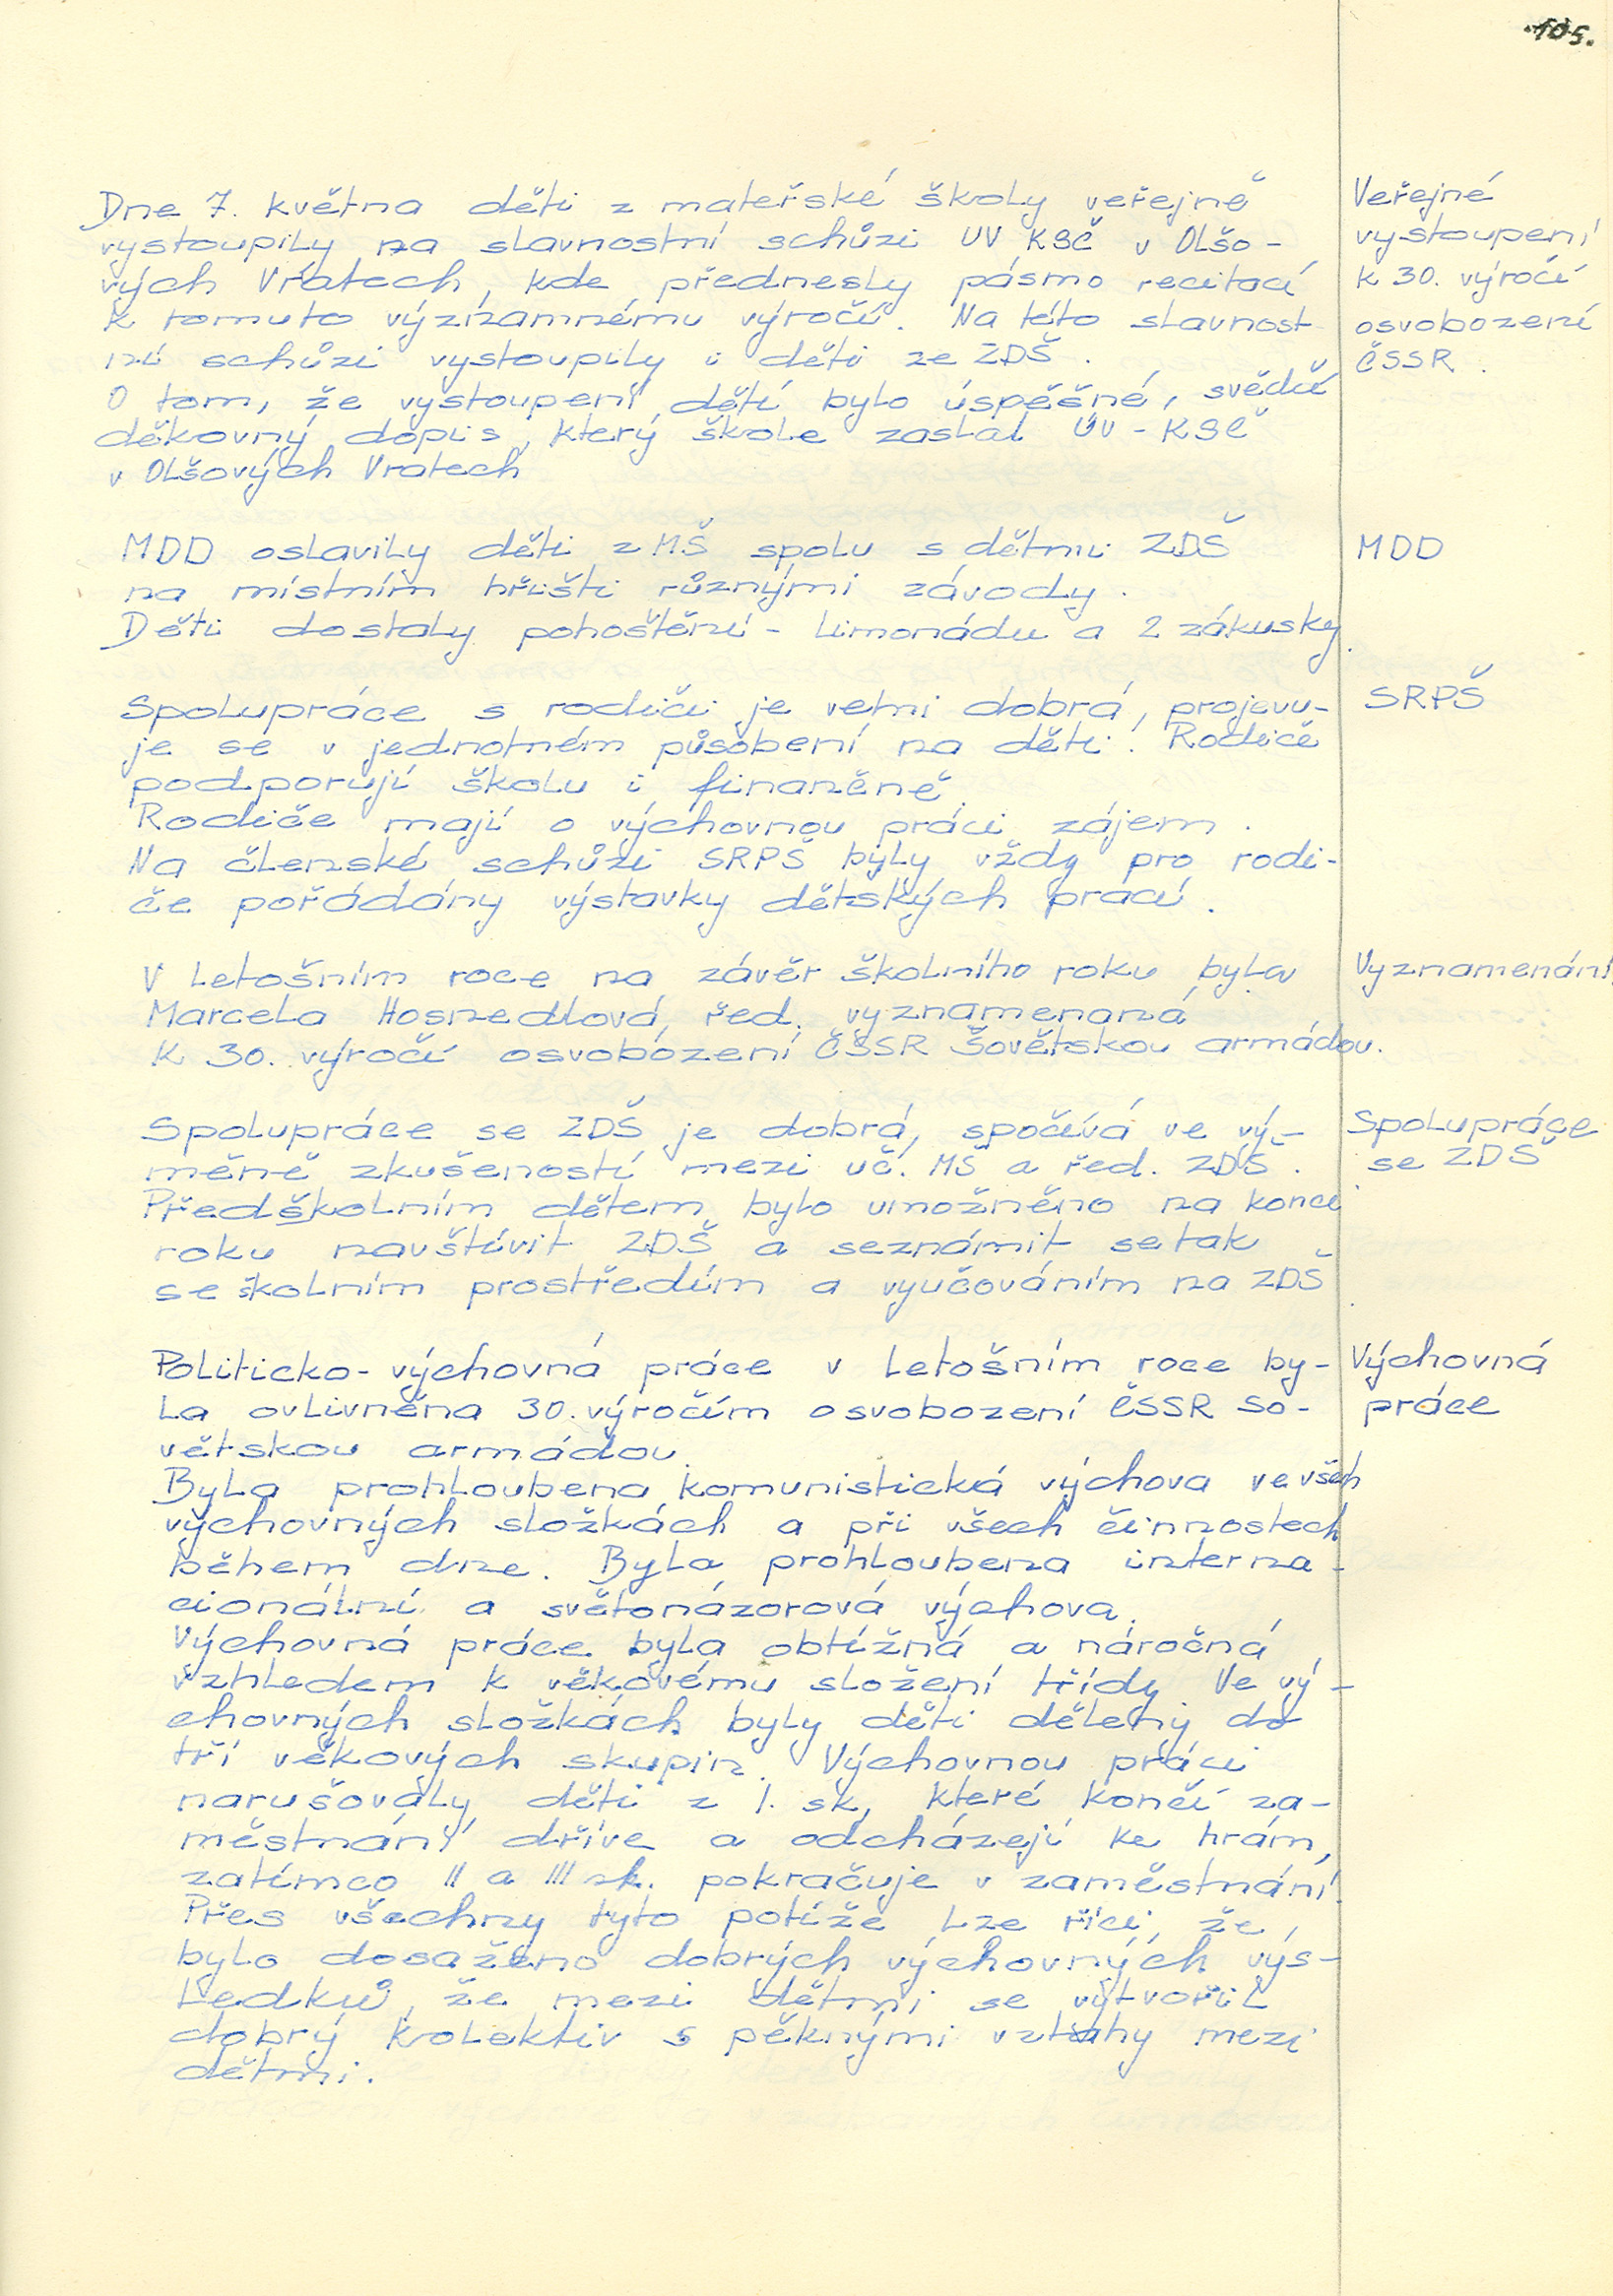 105.
Dne 7. května děti z mateřské školy veřejně
vystoupily na slavnostní schůzi UV KSČ v Olšo-
vých Vratech, kde přednesly pásmo recitací
k tomuto významnému výročí. Na této slavnost
ní schůzi vystoupily i děti ze ZDŠ.
O tom, že vystoupení dětí bylo úspěšné, svědčí
děkovný dopis, který škole zaslal ÚV - KSČ
v Olšových Vratech
Veřejné
vystoupení
k 30. výročí
osvobození
ČSSR.
MDD oslavily děti z MŠ spolu s dětmi ZDŠ
na místním hřišti různými závody.
Děti dostaly pohoštění - limonádu a 2 zákusky.
MDD
Spolupráce s rodiči je velmi dobrá, projevu-
je se v jednotném působení na děti. Rodiče
podporují školu i finančně.
Rodiče mají o výchovnou práci zájem.
Na členské schůzi SRPŠ byly vždy pro rodi-
če pořádány výstavky dětských prací.
SRPŠ
V letošním roce na závěr školního roku byla
Marcela Hosnedlová, řed. vyznamenaná
k 30. výročí osvobození ČSSR Sovětskou armádou.
Vyznamenání
Spolupráce se ZDŠ je dobrá, spočívá ve vý-
měně zkušeností mezi uč. MŠ a řed. ZDŠ.
Předškolním dětem bylo umožněno na konci
roku navštívit ZDŠ a seznámit se tak
se školním prostředím a vyučováním na ZDŠ.
Spolupráce
se ZDŠ
Politicko-výchovná práce v letošním roce by-
la ovlivněna 30. výročím osvobození ČSSR So-
větskou armádou.
Byla prohloubena komunistická výchova ve všech
výchovných složkách a při všech činnostech
během dne. Byla prohloubena interna-
cionální a světonázorová výchova.
Výchovná práce byla obtížná a náročná
vzhledem k věkovému složení třídy. Ve vý-
chovných složkách byly děti děleny do
tří věkových skupin. Výchovnou práci
narušovaly děti z I. sk, které končí za-
městnání dříve a odcházejí ke hrám,
zatímco II a III sk. pokračuje v zaměstnání.
Přes všechny tyto potíže lze říci, že
bylo dosaženo dobrých výchovných výs-
ledků, že mezi dětmi se vytvořil
dobrý kolektiv s pěknými vztahy mezi
dětmi.
Výchovná
práce